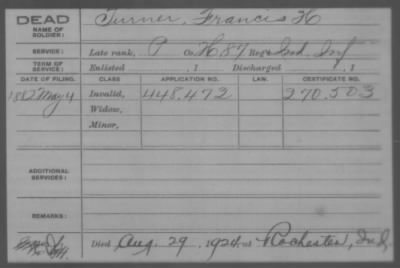 DEAD
NAME OF SOLDIER: Turner, Francis H
SERVICE: Late rank, P Co. H 87 Reg't Ind. Inf
TERM OF SERVICE: Enlisted , 1 Discharged , 1
DATE OF FILING. CLASS APPLICATION NO. LAW. CERTIFICATE NO.
1882 May 4 Invalid, 448.472 270.503
Widow,
Minor,
ADDITIONAL SERVICES:
REMARKS:
Died Aug. 29, 1924, at Rochester, Ind.